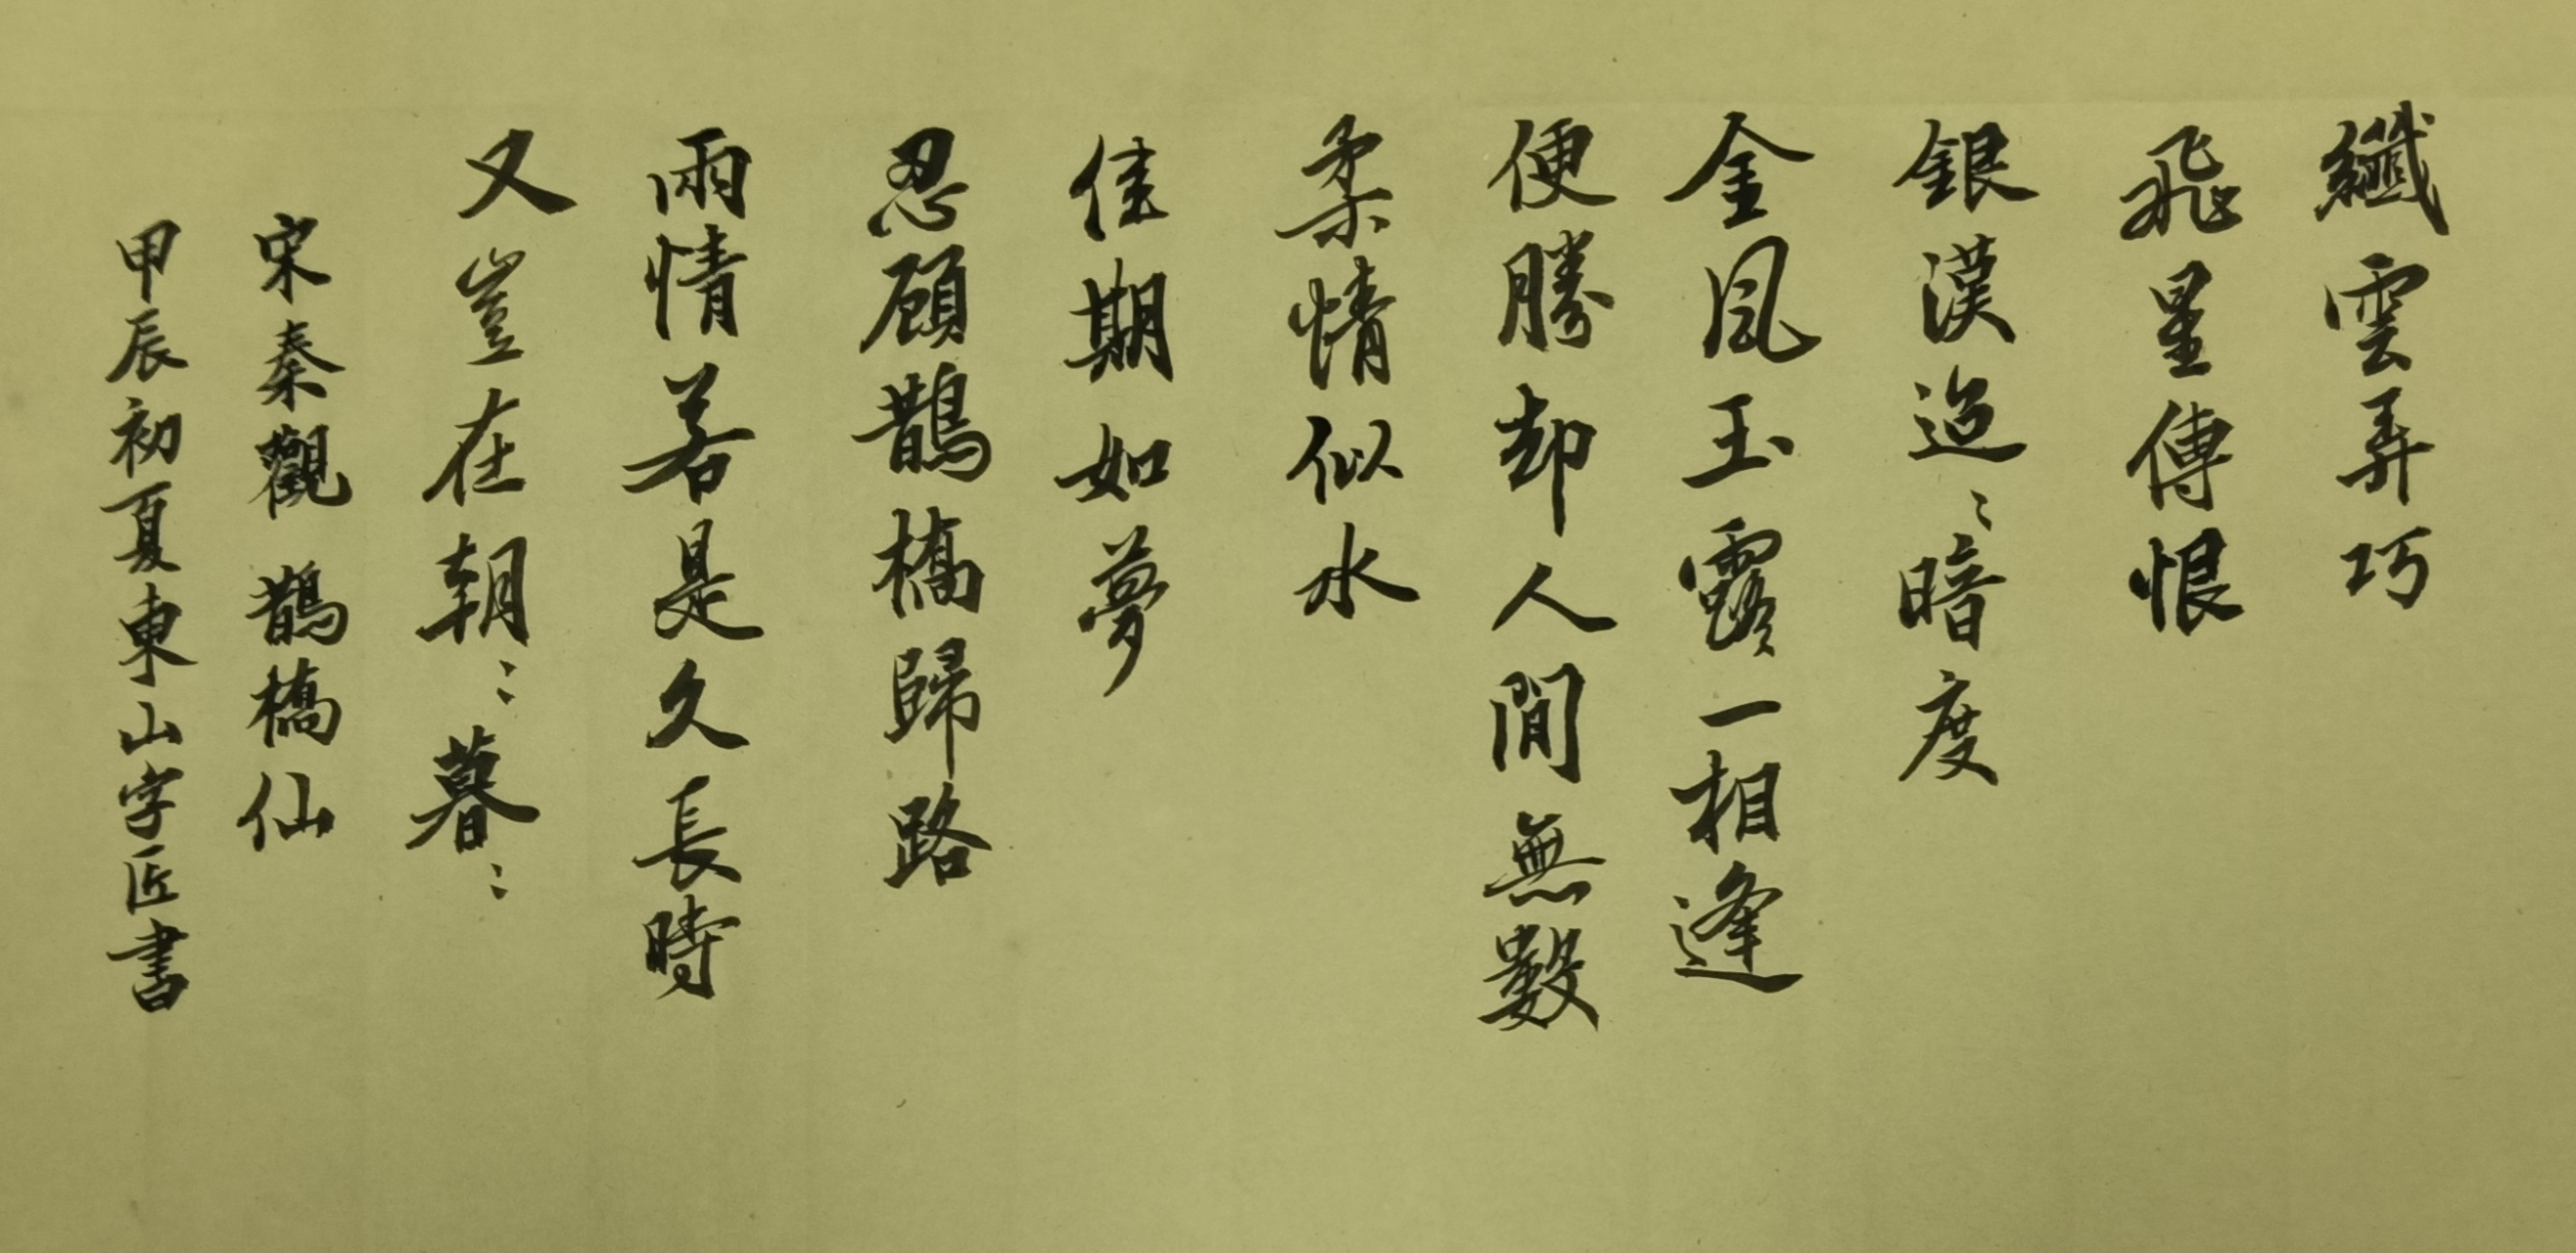 纖雲弄巧
飛星傳恨
銀漢迢〻暗度
金風玉露一相逢
便勝却人間無數
柔情似水
佳期如夢
忍顧鵲橋歸路
兩情若是久長時
又豈在朝〻暮〻
宋秦觀 鵲橋仙
甲辰初夏東山字匠書